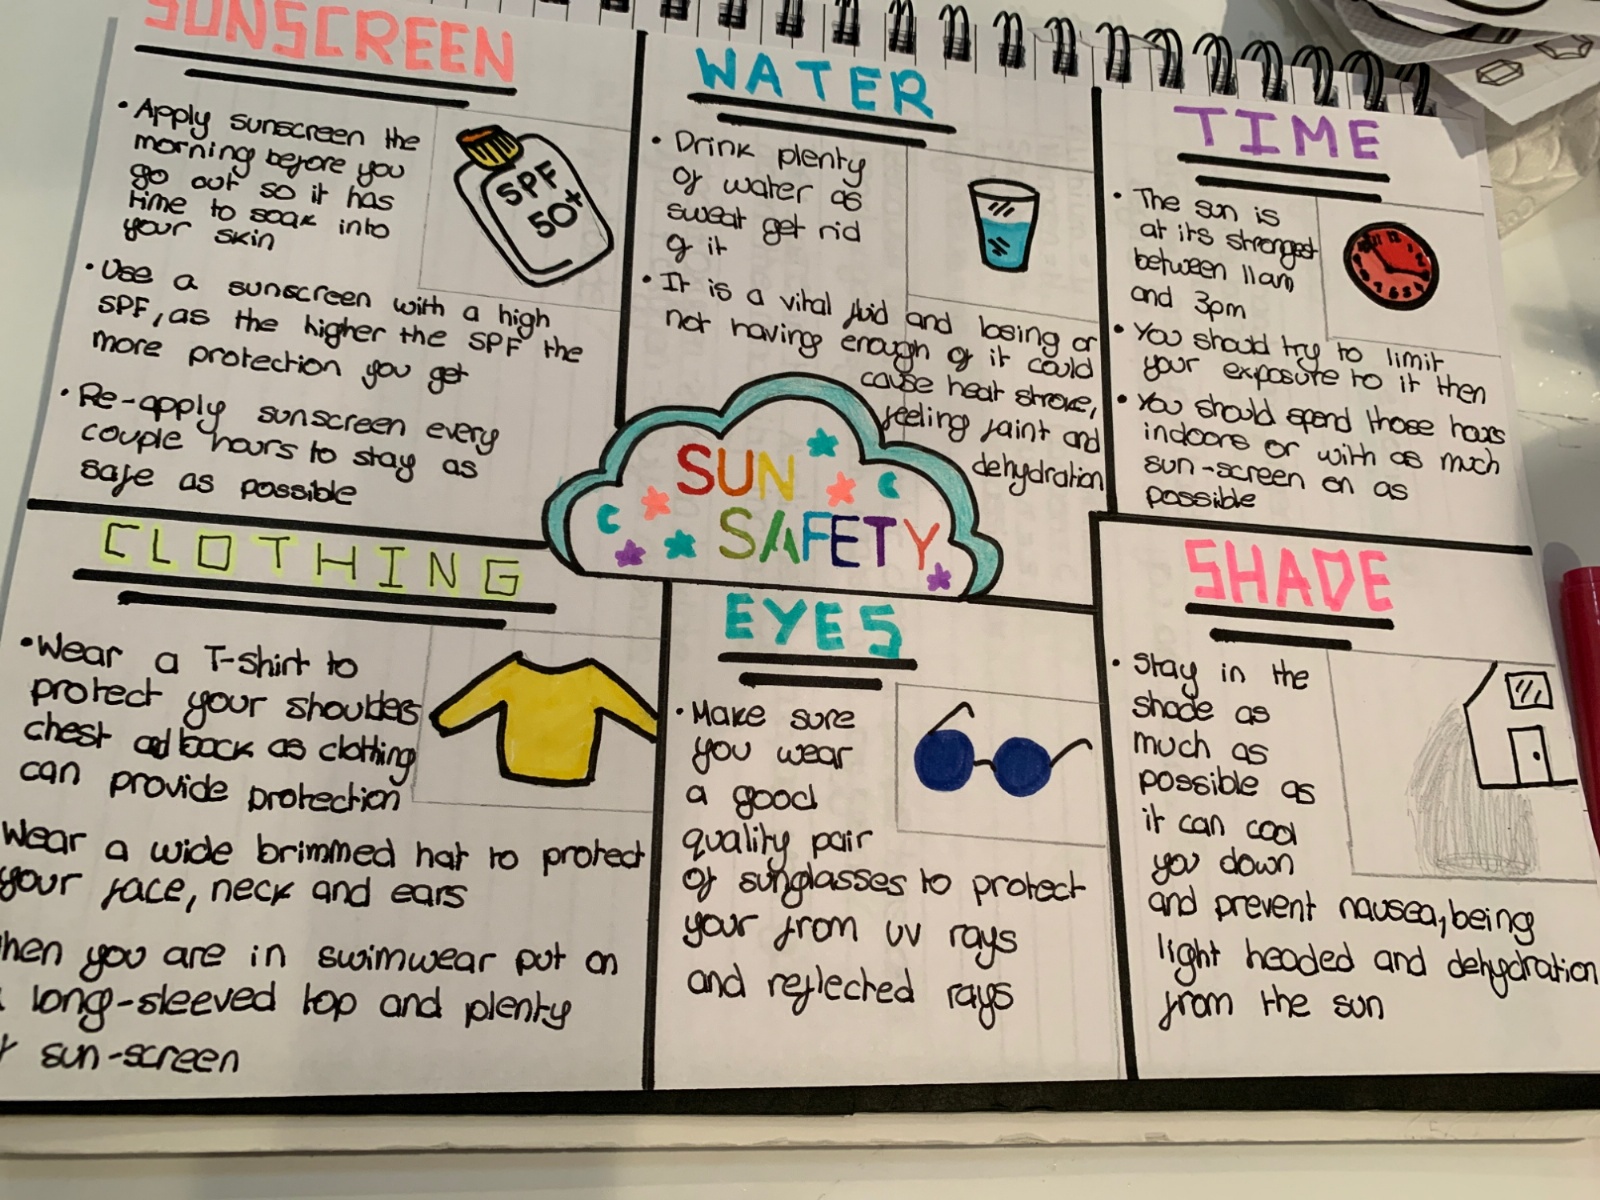 SUNSCREEN
• Apply sunscreen the
morning before you
go out so it has
time to soak into
your skin
• Use a sunscreen with a high
SPF, as the higher the SPF the
more protection you get
• Re-apply sunscreen every
couple hours to stay as
safe as possible
SPF
50+
WATER
• Drink plenty
of water as
sweat get rid
of it
• It is a vital fluid and losing or
not having enough of it could
cause heat stroke,
feeling faint and
dehydration
TIME
• The sun is
at its strongest
between 11am
and 3pm
• You should try to limit
your exposure to it then
• You should spend those hours
indoors or with as much
sun-screen on as
possible
SUN
SAFETY
CLOTHING
• Wear a T-shirt to
protect your shoulders
chest and back as clothing
can provide protection
Wear a wide brimmed hat to protect
your face, neck and ears
hen you are in swimwear put on
long-sleeved top and plenty
sun-screen
EYES
• Make sure
you wear
a good
quality pair
of sunglasses to protect
your from UV rays
and reflected rays
SHADE
• Stay in the
shade as
much as
possible as
it can cool
you down
and prevent nausea, being
light headed and dehydration
from the sun